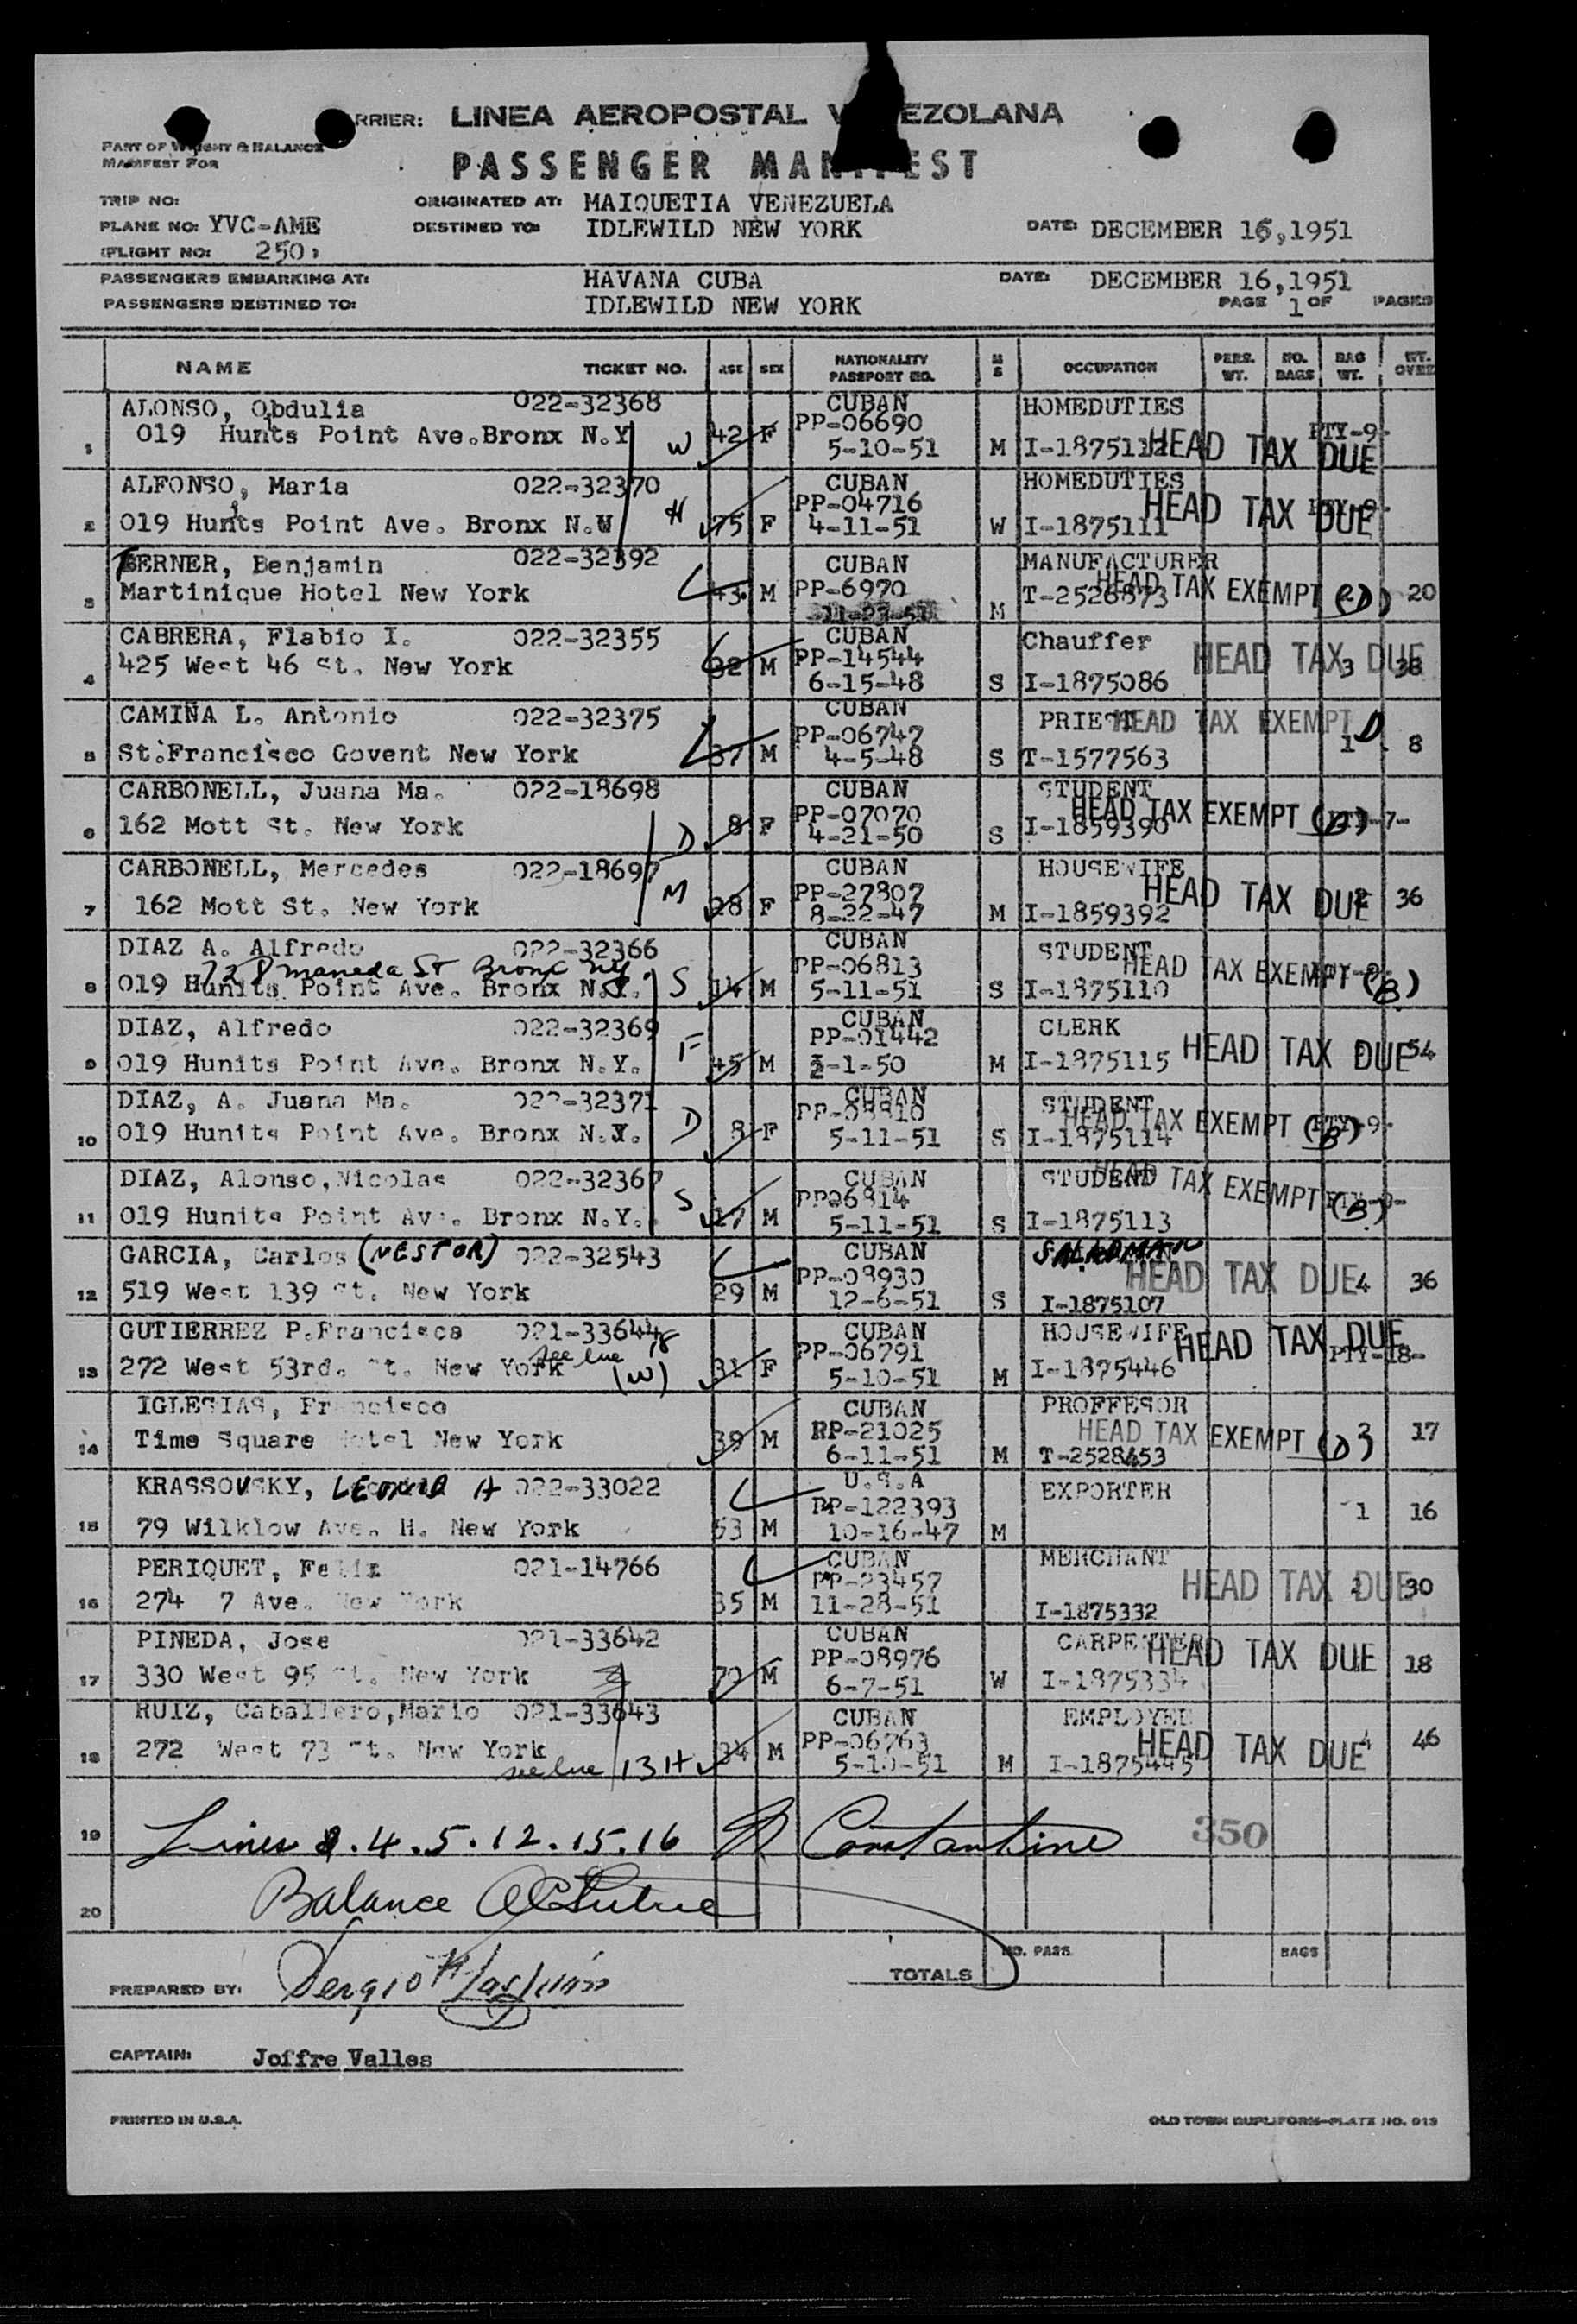 RRIER: LINEA AEROPOSTAL V EZOLANA
PART OF WEIGHT & BALANCE
MANIFEST FOR
PASSENGER MANIFEST
TRIP NO:
ORIGINATED AT: MAIQUETIA VENEZUELA
PLANE NO: YVC-AME
DESTINED TO: IDLEWILD NEW YORK
DATE: DECEMBER 16,1951
FLIGHT NO: 250
PASSENGERS EMBARKING AT: HAVANA CUBA
DATE: DECEMBER 16,1951
PASSENGERS DESTINED TO: IDLEWILD NEW YORK
PAGE 1 OF PAGES
NAME TICKET NO. AGE SEX NATIONALITY PASSPORT NO. M S OCCUPATION PERS. WT. NO. BAGS BAG WT. WT. OVER
ALONSO, Obdulia 022-32368 CUBAN HOMEDUTIES
PP-06690
1 019 Hunts Point Ave.Bronx N.Y W 42 F 5-10-51 M HEAD TAX DUE PTY-9-
ALFONSO, Maria 022-32370 CUBAN HOMEDUTIES
PP-04716
2 019 Hunts Point Ave. Bronx N.Y H 75 F 4-11-51 W I-1875111 HEAD TAX DUE
BERNER, Benjamin 022-32392 CUBAN MANUFACTURER
3 Martinique Hotel New York 43 M PP-6970 M T-2526873 HEAD TAX EXEMPT (D) 20
CABRERA, Flabio I. 022-32355 CUBAN Chauffer
425 West 46 St. New York 32 M PP-14544 HEAD TAX DUE 3 38
4 6-15-48 S I-1875086
CAMIÑA L. Antonio 022-32375 CUBAN PRIEST HEAD TAX EXEMPT D
PP-06747
5 St.Francisco Govent New York 37 M 4-5-48 S T-1577563 1 8
CARBONELL, Juana Ma. 022-18698 CUBAN STUDENT
PP-07070 HEAD TAX EXEMPT (B)
6 162 Mott St. New York D 8 F 4-21-50 S I-1859390
CARBONELL, Mercedes 022-18697 CUBAN HOUSEWIFE
PP-27807
7 162 Mott St. New York M 28 F 8-22-47 M I-1859392 HEAD TAX DUE 36
DIAZ A. Alfredo 022-32366 CUBAN STUDENT
728 Maneda St Bronx NY PP-06813 HEAD TAX EXEMPT (B)
8 019 Hunits Point Ave. Bronx N.Y. S 14 M 5-11-51 S I-1875110
DIAZ, Alfredo 022-32369 CUBAN CLERK
PP-01442
9 019 Hunits Point Ave. Bronx N.Y. F 45 M 2-1-50 M I-1875115 HEAD TAX DUE 54
DIAZ, A. Juana Ma. 022-32371 CUBAN STUDENT
HEAD TAX EXEMPT (B) PTY-9-
10 019 Hunits Point Ave. Bronx N.Y. D 8 F 5-11-51 S I-1875114
DIAZ, Alonso,Nicolas 022-32367 CUBAN STUDENT
PP06814 HEAD TAX EXEMPT (B)
11 019 Hunits Point Ave. Bronx N.Y. S 17 M 5-11-51 S I-1875113
GARCIA, Carlos (NESTOR) 022-32543 CUBAN SALADMAN
PP-08930 HEAD TAX DUE 4 36
12 519 West 139 St. New York 29 M 12-6-51 S I-1875107
GUTIERREZ P.Francisca CUBAN HOUSEWIFE
see line PP-06791 HEAD TAX DUE PTY-18-
13 272 West 53rd. St. New York (W) 31 F 5-10-51 M I-1875446
IGLESIAS, Francisco CUBAN PROFFESOR
PP-21025 HEAD TAX EXEMPT (D)
14 Time Square Hotel New York 39 M 6-11-51 M T-2528453 17
KRASSOVSKY, LEONID A 022-33022 U.S.A EXPORTER
PP-122393 1 16
15 79 Wilklow Ave. H. New York 53 M 10-16-47 M
PERIQUET, Felix 021-14766 CUBAN MERCHANT
PP-23457 HEAD TAX DUE 30
16 274 7 Ave. New York 35 M 11-28-51 I-1875332
PINEDA, Jose 021-33642 CUBAN CARPENTER
PP-08976 HEAD TAX DUE 18
17 330 West 95 St. New York 70 M 6-7-51 W I-1875334
RUIZ, Caballero,Mario 021-33643 CUBAN EMPLOYEE
PP-06763 HEAD TAX DUE 46
18 272 West 73 St. New York 34 M 5-10-51 M I-1875445
see line 13 H
19 Lines 4.5.12.15.16 Constantine 350
20 Balance
TOTALS NO. PASS. BAGS
PREPARED BY: Sergio
CAPTAIN: Joffre Valles
PRINTED IN U.S.A.
OLD TOWN DUPLIFORM-PLATE NO. 913